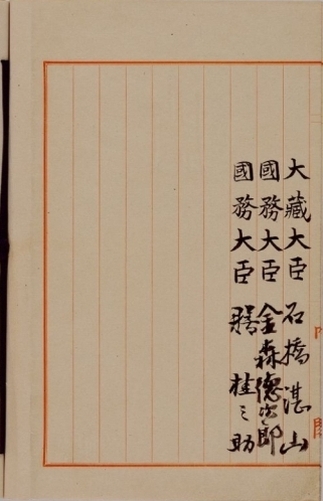 大藏大臣 石橋湛山
國務大臣 金森德次郎
國務大臣 膳 桂之助